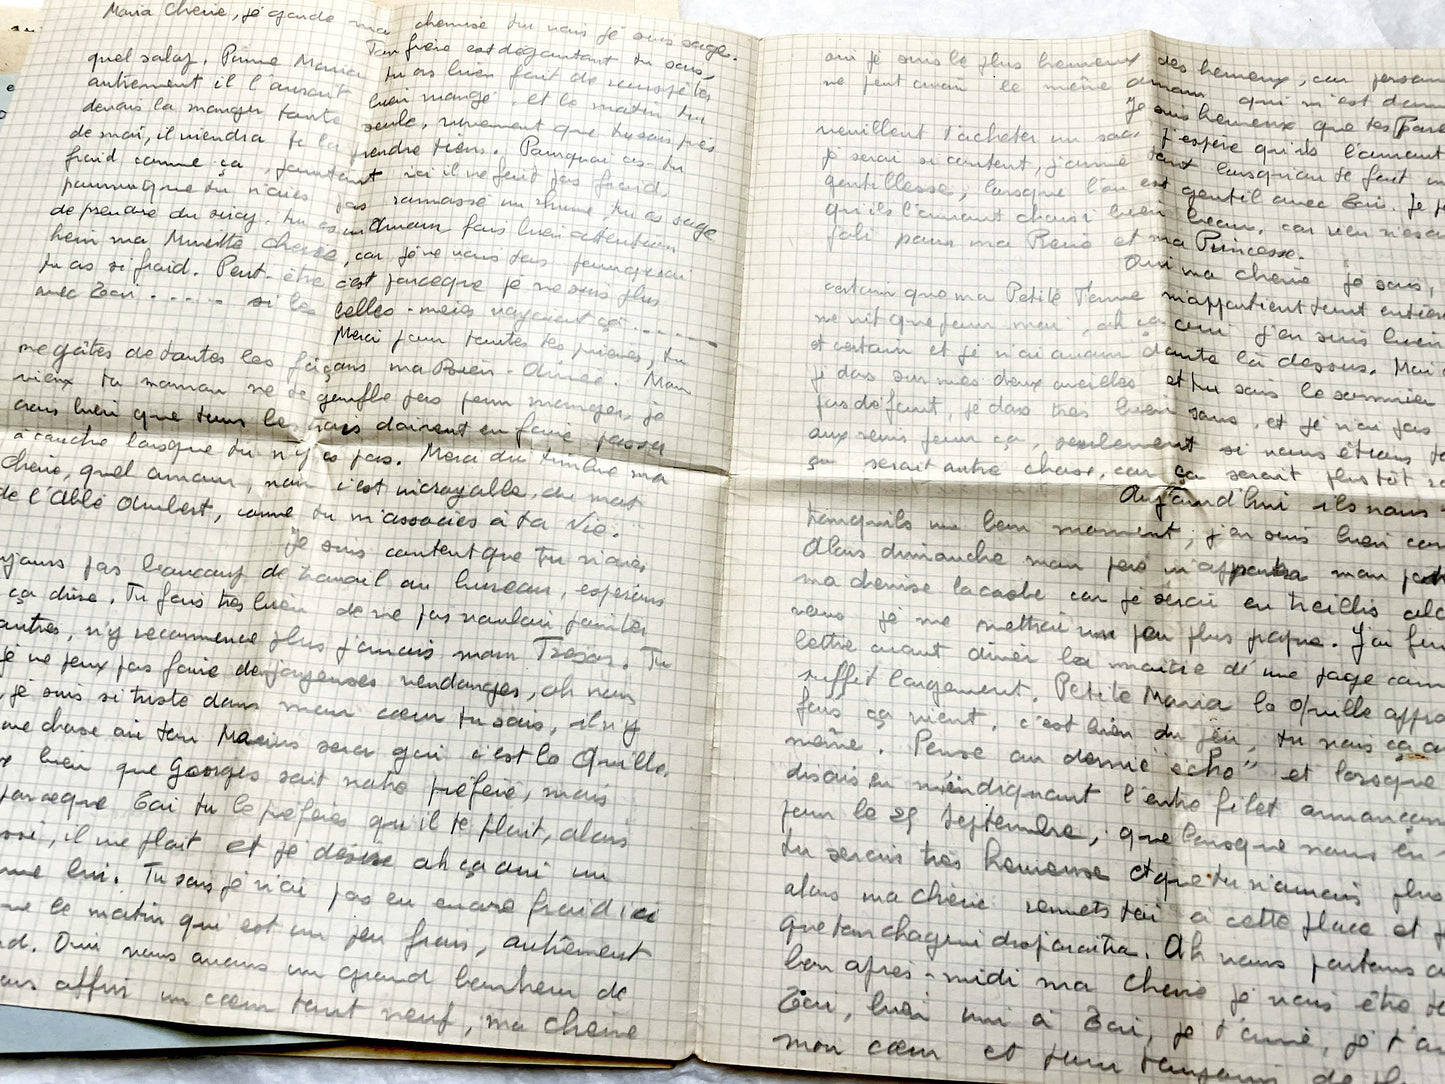 Maria Cherie, je garde ma chemise tu vois je suis sage.
quel salop. Pauvre Maria Ton frère est dégoutant tu sais,
autrement il l'aurait tu as bien fait de rouspéter
devais la manger toute bien mangé, et le matin tu
de moi, il viendra te la seule, vivement que tu sois près
froid comme ça, pourtant prendre tiens. Pourquoi as-tu
pourvu que tu n'aies pas ici il ne fait pas froid
de prendre du sirop. tu as ramassé un rhume, tu as sage
hein ma Minette cherie, un Amour fais bien attention
tu as si froid. Peut-être, car je ne vois pas pourquoi
avec Toi ..... si les c'est parceque je ne suis plus
celles-meies voyaient ça......
Merci pour toutes tes prières, tu
me gâtes de toutes les façons ma Bien-Aimée. Mon
vieux tu maman ne te gonfle pas pour manger, je
crois bien que tous les gars doivent en faire passer
à cauche lorsque tu n'y es pas. Merci du timbre ma
Chérie, quel amour, non c'est incroyable, du mot
de l'Abbé Aubert, comme tu m'associes à ta Vie.
Je suis content que tu n'aies
pas beaucoup de travail au bureau, espérons
ça dure. Tu fais très bien de ne pas vouloir
autres, n'y recommence plus jamais mon Tresor. Tu
je ne peux pas faire de joyeuses vendanges, oh non
, je suis si triste dans mon cœur tu sais, il n'y
chose où ton Marius sera gai c'est la Quille.
bien que Georges soit notre préféré, mais
parceque Toi tu le préfères qu'il te plait, alors
, il me plait et je désire ah ça oui un
lui. Tu sais je n'ai pas eu encore froid ici
le matin qui est un peu frais, autrement
. Oui nous avons un grand bonheur de
offrir un cœur tout neuf, ma cherie
oui je suis le plus heureux des heureux, car
ne peut avoir le même amour qui m'est
Je suis heureux que tes
veuillent t'acheter un sac j'espère qu'ils l'auront
je serai si content, j'aime tant lorsqu'on te fait
gentillesse, lorsque l'on est gentil avec Toi. Je
qu'ils l'auront choisi bien beau, car rien n'est
joli pour ma Reine et ma Princesse.
Oui ma cherie je sais,
certain que ma Petite Femme m'appartient tout
ne vit que pour moi, oh ça oui j'en suis bien
et certain et je n'ai aucun doute là dessus.
je dors sur mes deux oreilles et tu sais le sommier
pas défaut, je dors très bien sans, et je n'ai pas
aux reins pour ça, seulement si nous étions
ça serait autre chose, car ça serait plutôt
Aujourd'hui ils nous
tranquils un bon moment, j'en suis bien
Alors dimanche mon père m'apportera mon
ma chemise lacoste car je serai en treillis
vous je me mettrai un peu plus propre. J'ai
lettre avant diner la moitié d'une page
suffit largement. Petite Maria la Quille
fois ça vient, c'est bien du jeu, tu vois ça
même. Pense au dernié "écho" et lorsque
disais en m'indiquant l'entre filet
pour le 29 septembre, que lorsque nous en
tu serais très heureuse et que tu n'aurais plus
alors ma cherie remets toi à cette place et
que ton chagrin disparaîtra. Ah nous partons
bon après-midi ma Cherie je vais être
Toi, bien uni à Toi, je t'aime, je
mon cœur et pour toujours